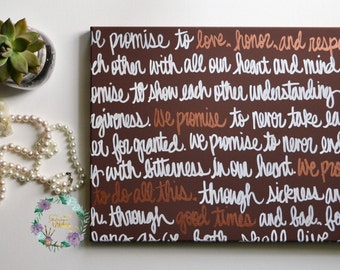 we promise to love, honor, and respe
ch other with all our heart and mind
omise to show each other understanding
rgiveness. We promise to never take ea
er for granted. we promise to never end
y with bitterness in our heart. We pro
to do all this. through sickness an
h. through good times and bad. fo
long as we both shall live